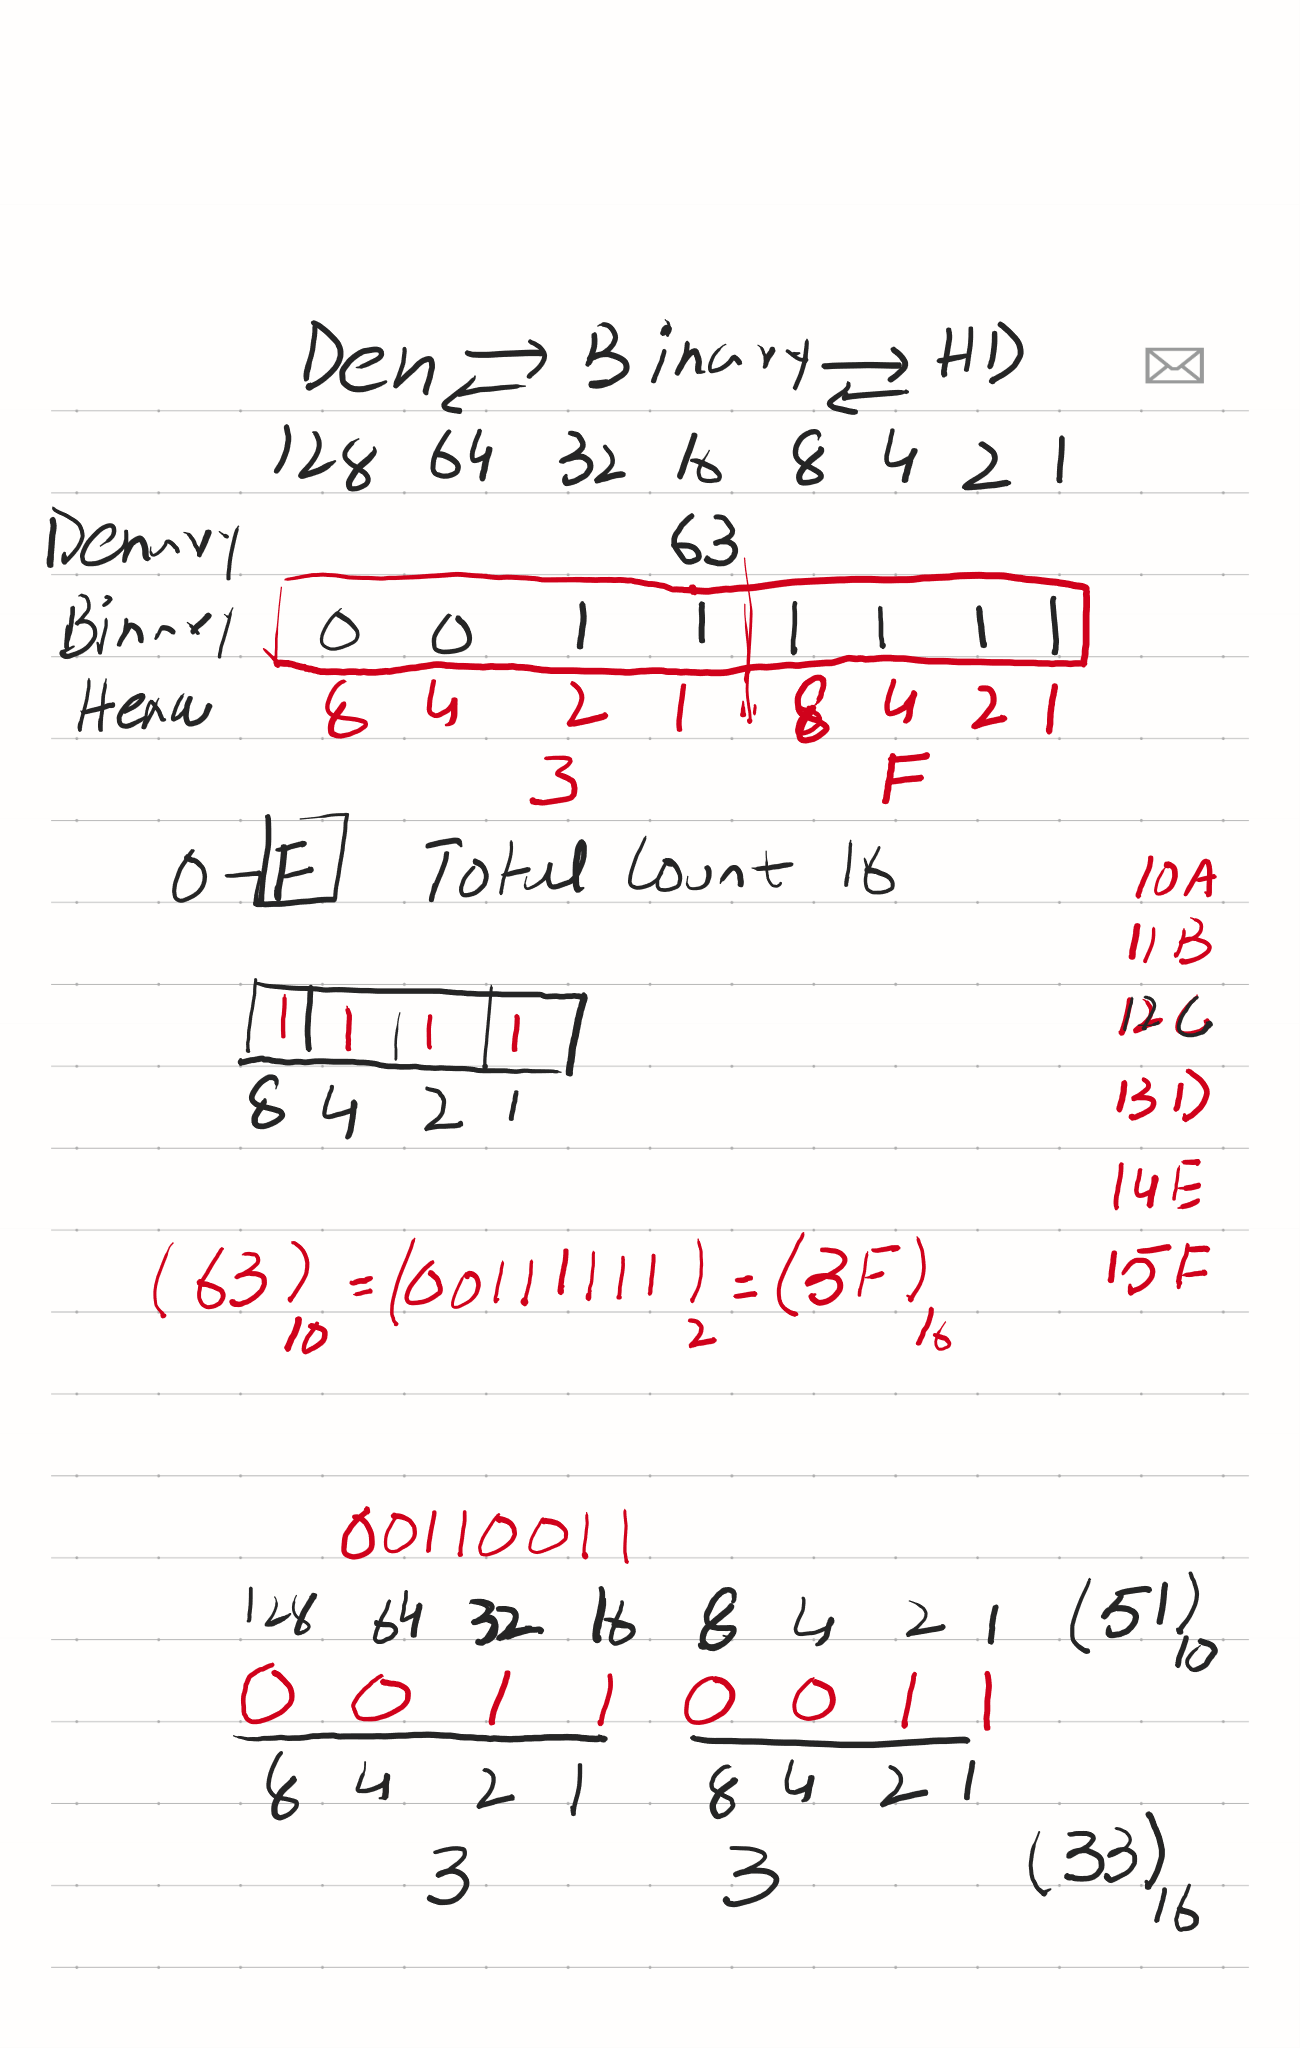 Den ⇄ Binary ⇄ HD
128 64 32 16 8 4 2 1
Denary 63
Binary 0 0 1 1 1 1 1 1
Hexa 8 4 2 1 8 4 2 1
3 F
0 - F Total Count 16
10 A
11 B
1 1 1 1
12 C
8 4 2 1
13 D
14 E
15 F
(63)10 = (00111111)2 = (3F)16
00110011
128 64 32 16 8 4 2 1 (51)10
0 0 1 1 0 0 1 1
8 4 2 1 8 4 2 1
3 3 (33)16